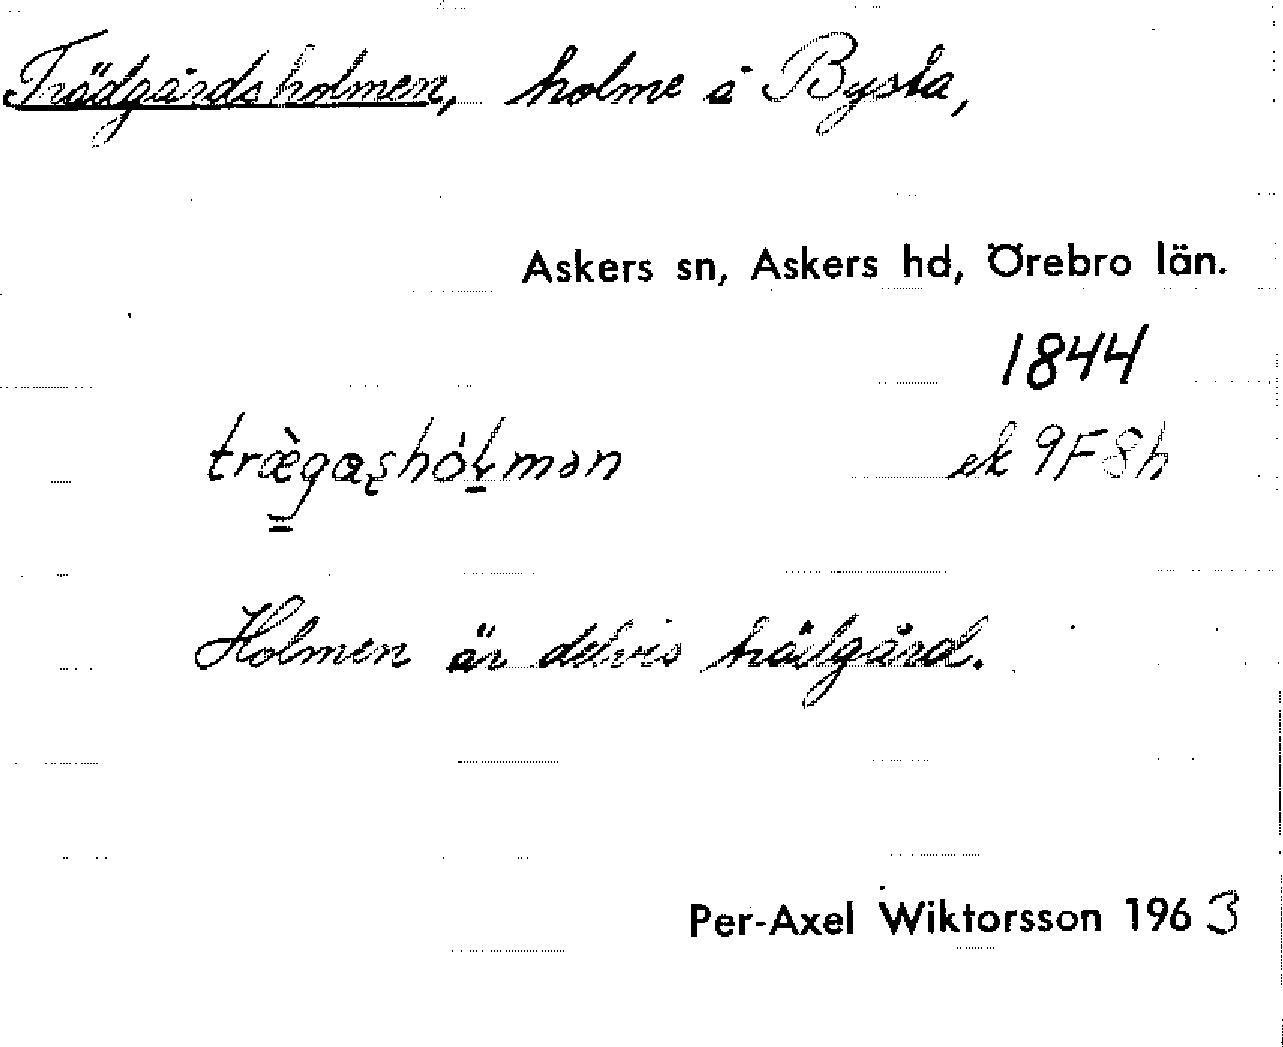 Trädgårdsholmen, holme i Bysta,
Askers sn, Askers hd, Örebro län.
1844
træ̀gaʂhóɭmən ek 9F8h
Holmen är delvis kålgård.
Per-Axel Wiktorsson 1963